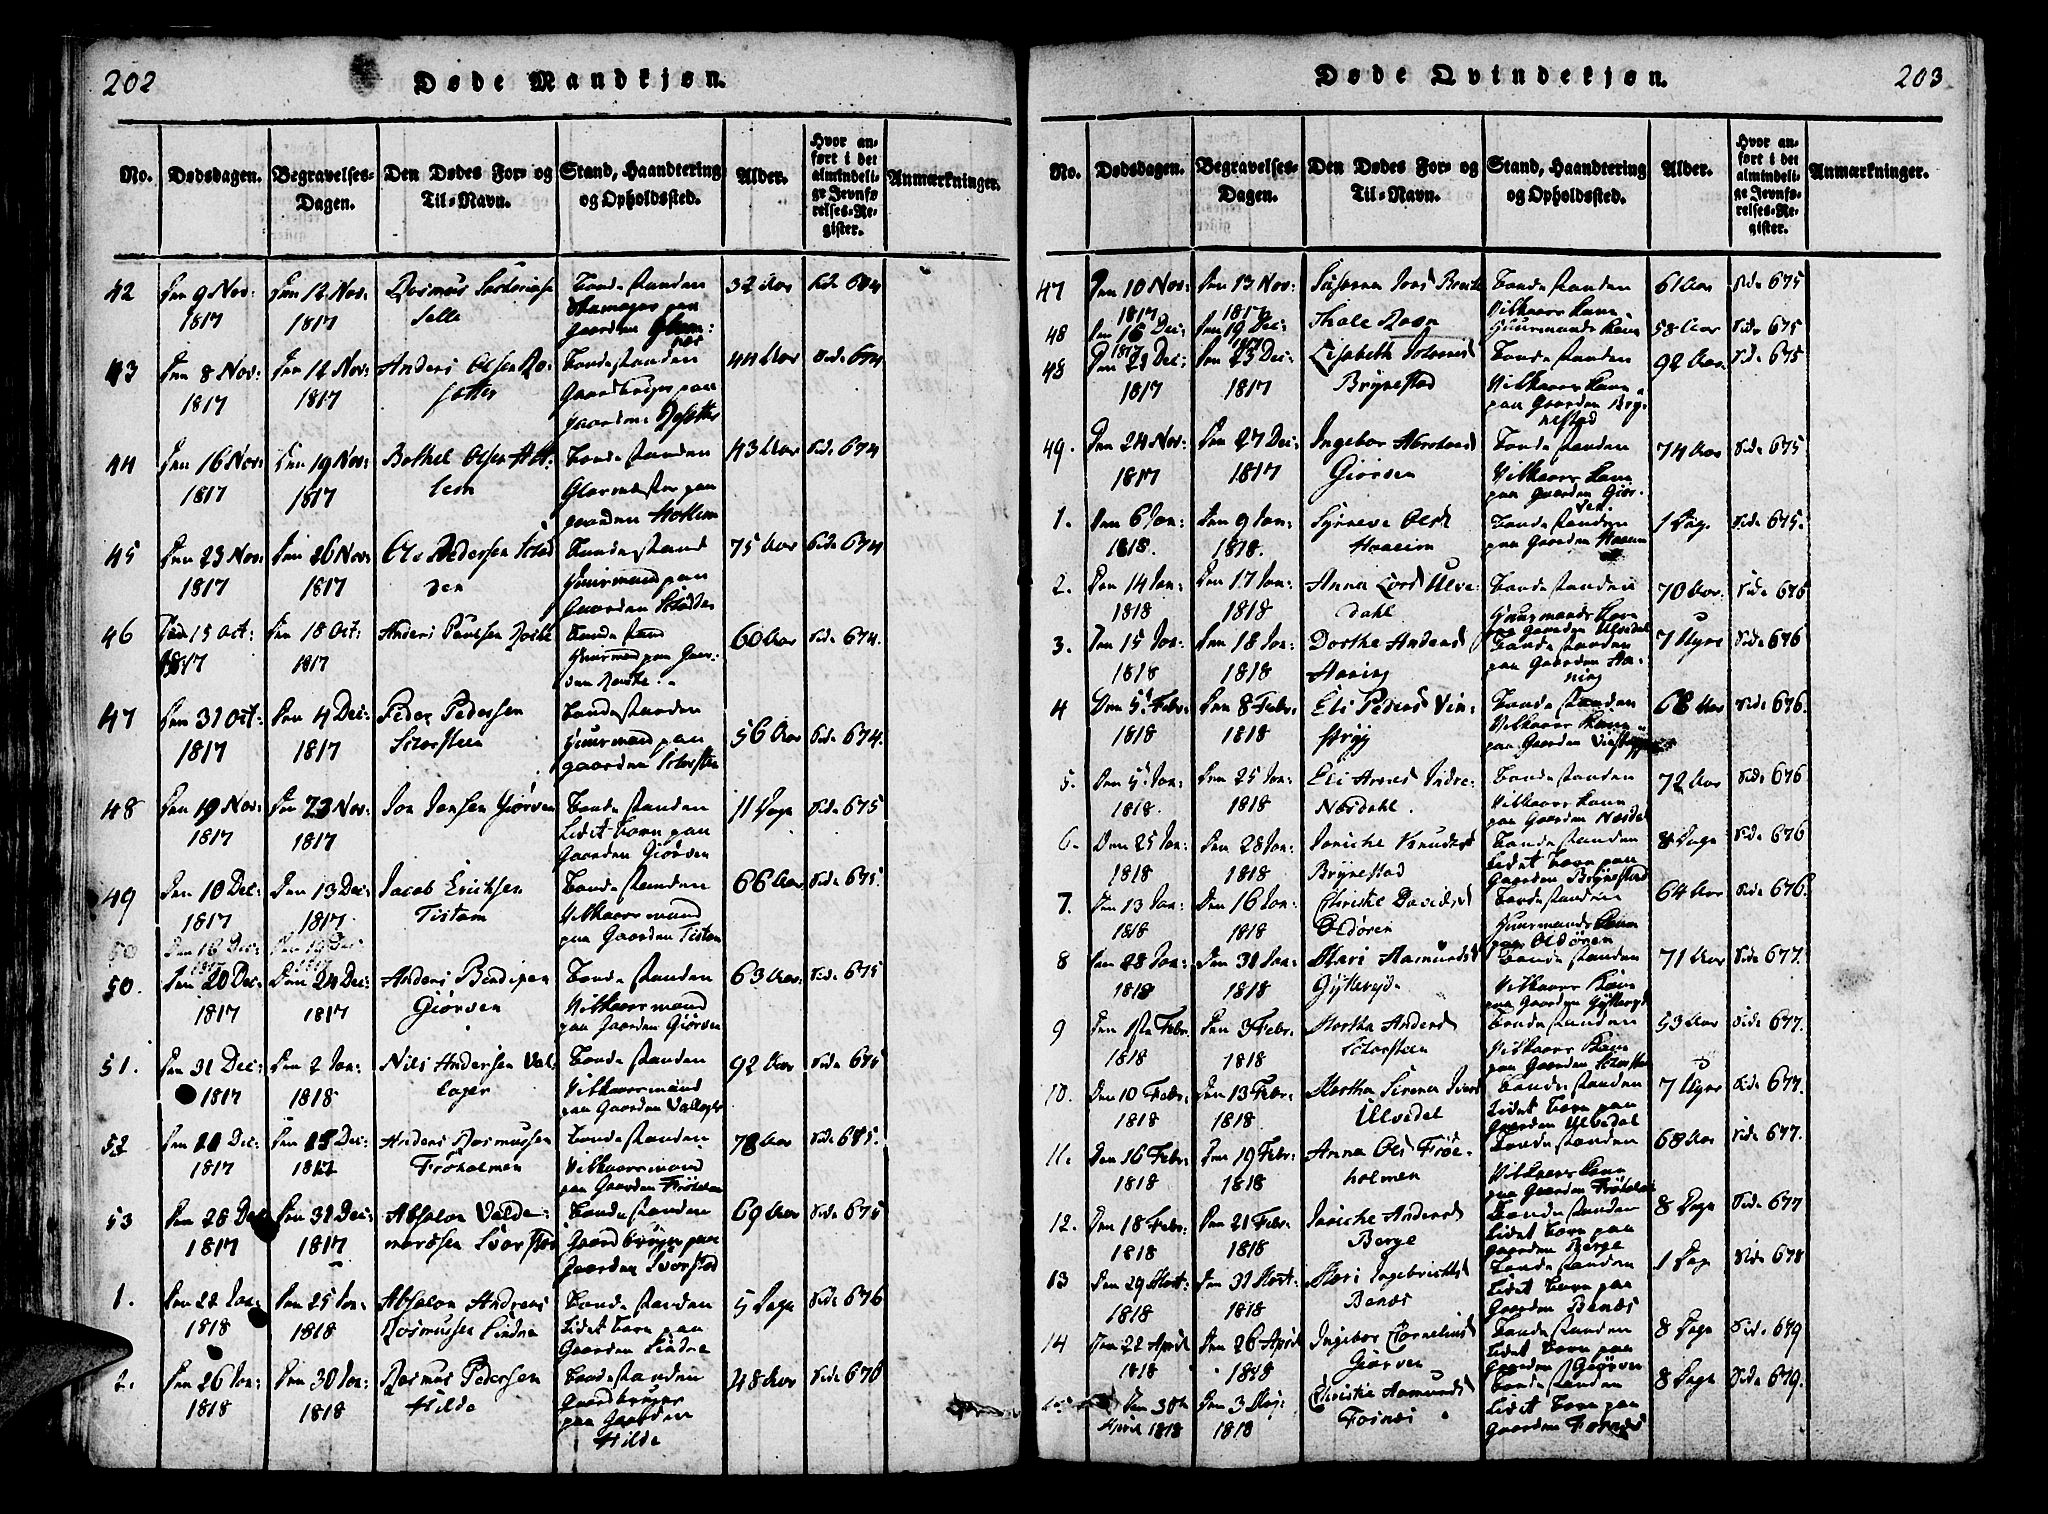 202
Døde Mandkjøn.
No.
Dødsdagen.
Begravelses-
Dagen.
Den Dødes For- og
Til-Navn.
Stand, Haandtering
og Opholdssted.
Alder.
Hvor an-
ført i det
almindeli-
ge Jevnfø-
relses-Re-
gister.
Anmærkninger.
42 Den 9 Nov: 1817 Den 12 Nov: 1817 Rasmus
32 Aar Side 674
43 Den 8 Nov: 1817 Den 12 Nov: 1817 Anders Olsen
Bondestanden
Gaardbruger paa
44 Aar Side 674
44 Den 16 Nov: 1817 Den 19 Nov: 1817 Bottel Olsen
Bondestanden
43 Aar Side 674
45 Den 23 Nov: 1817 Den 26 Nov: 1817 Ole Pedersen
Huusmand paa
75 Aar Side 674
46 Den 15 Oct: 1817 Den 18 Oct: 1817 Anders Paulsen
60 Aar Side 674.
47 Den 31 Oct: 1817 Den 4 Dec: 1817 Peder Pedersen
Storsteen
Bondestanden
Huusmand paa
gaarden Storsteen
56 Aar Side 674.
48 Den 19 Nov: 1817 Den 23 Nov: 1817 Jon Jonsen Giørven
Bondestanden
Lidet Barn paa
Gaarden Giørven
11 Dage Side 675
49 Den 10 Dec: 1817 Den 13 Dec: 1817 Jacob Ericksen
Tistam
Bondestanden
Vilkaarsmand
paa Gaarden Tistam
66 Aar Side 675.
50. Den 20 Dec: 1817 Den 24 Dec: 1817 Anders Bendixen
Giørven
Bondestanden
Vilkaarsmand
paa Gaarden Giørven
63 Aar Side 675
51. Den 31 Dec: 1817 Den 2 Jan: 1818 Nils Andersen Val-
lager
Bondestanden
Vilkaarsmand
paa Gaarden Vallager
92 Aar Side 675
52 Dec: 1817 Anders Rasmussen
Frøholmen
Bondestanden
Vilkaarsmand
paa Gaarden Frøholmen
78 Aar Side 675.
53 Den 26 Dec: 1817 Den 31 Dec: 1817 Absolon Valde-
mardsen Svorstad
Bondestanden
Gaardbruger paa
Gaarden Svorstad
69 Aar Side 675
1. Den 22 Jan: 1818 Den 25 Jan: 1818 Absolon Andreas
Rasmussen Lindre
Bondestanden
Lidet Barn paa
Gaarden Lindre
5 Dage Side 676
2. Den 26 Jan: 1818 Den 30 Jan: 1818 Rasmus Pedersen
Hilde
Bondestanden
gaardbruger
paa Gaarden
Hilde
48 Aar Side 676
203
Døde Qvindekjøn.
No.
Dødsdagen.
Begravelses-
Dagen.
Den Dødes For- og
Til-Navn.
Stand, Haandtering
og Opholdssted.
Alder.
Hvor an-
ført i det
almindeli-
ge Jevnfø-
relses-Re-
gister.
Anmærkninger.
47 Den 10 Nov: 1817 Den 13 Nov: 1817
Bondestanden
Vilkaars Kone
61 Aar Side 675
48 Den 16 Dec: 1817 Den 19 Dec:
Huusmands Kone
58 Aar Side 675
48 Dec: 1817 Den 23 Dec: 1817 Lisabeth
Brynestad
Bondestanden
Vilkaars Kone
paa Gaarden Bry-
nestad
92 Aar Side 675
49. Den 24 Nov: 1817 Den 27 Dec: 1817 Ingebor
Giørven
Bondestanden
Vilkaars Kone
paa Gaarden Giør-
ven.
74 Aar Side 675
1. Den 6 Jan: 1818. Den 9 Jan: 1818. Synneve Olsd
Haaeim
Bondestanden
paa Gaarden Haaeim
1 Dag Side 675.
2. Den 14 Jan: 1818 Den 17 Jan: 1818 Anna Larsd Ulve-
dahl
Bondestanden
Huusmands Kone
paa Gaarden Ulvedal
70 Aar Side 676
3. Den 15 Jan: 1818 Den 18 Jan: 1818 Dorthe Andersd
Aaning
Bondestanden
paa Gaarden Aa-
ning
7 Uger Side 676
4 Den 5 Febr: 1818 Den 8 Febr: 1818 Eli Petersd Vin-
strøy
Bondestanden
Vilkaars Kone
68 Aar Side 676
5. Den 5 Jan: 1818. Den 25 Jan: 1818 Eli Arnesd Indre-
Næsdahl.
Bondestanden
Vilkaars Kone
paa Gaarden Næsdal
72 Aar Side 676
6. Den 25 Jan: 1818 Den 28 Jan: 1818 Joriche Knudsd
Brynestad
Bondestanden
Lidet Barn paa
Gaarden Brynestad
8 Dage Side 676
7. Den 13 Jan: 1818 Den 16 Jan: 1818 Christie Davidsd
Oldøren
Bondestanden
Huusmands Kone
paa Oldøren
64 Aar Side 676.
8 Den 28 Jan: 1818 Den 31 Jan: 1818 Mari Aamundsd
Gytterye
Bondestanden
Vilkaars Kone
71 Aar Side 677.
9 Den 1ste Febr. 1818 Den 3 Febr. 1818 Martha Andersd
Storsteen
Bondestanden
Vilkaars Kone
paa Gaarden Storsteen
53 Aar Side 677.
10. Den 10 Febr: 1818 Den 13 Febr: 1818. Martha Serena Iversd
Ulvedal
Bondestanden
Lidet Barn paa
Gaarden Ulvedal
7 Uger Side 677.
11. Den 16 Febr: 1818 Den 19 Febr: 1818 Anna Olsd Frøe-
holmen
Bondestanden
Vilkaars Kone
paa Gaarden Frøholmen
68 Aar Side 677.
12. Den 18 Febr: 1818 Den 21 Febr: 1818 Joriche Andersd
Berge
Bondestanden
Lidet Barn paa
gaarden Berge
8 Dage Side 677
13 Den 29 Mart: 1818 Den 31 Mart: 1818 Mari Ingebrictsd
Benæs
Bondestanden
Lidet Barn paa
Gaarden Benæs
1 Dag Side 678
14 Den 22 April 1818 Den 26 April 1818 Ingebor Corneliusd
Giørven
Bondestanden
Lidet Barn paa
Gaarden Giørven
8 Dage Side 679
Den 30te April 1818 Den 3 Maj: 1818 Christie Aamundsd
Fosnæs
Bondestanden
Lidet Barn paa
Gaarden Fosnæs
8 Dage Side 679.